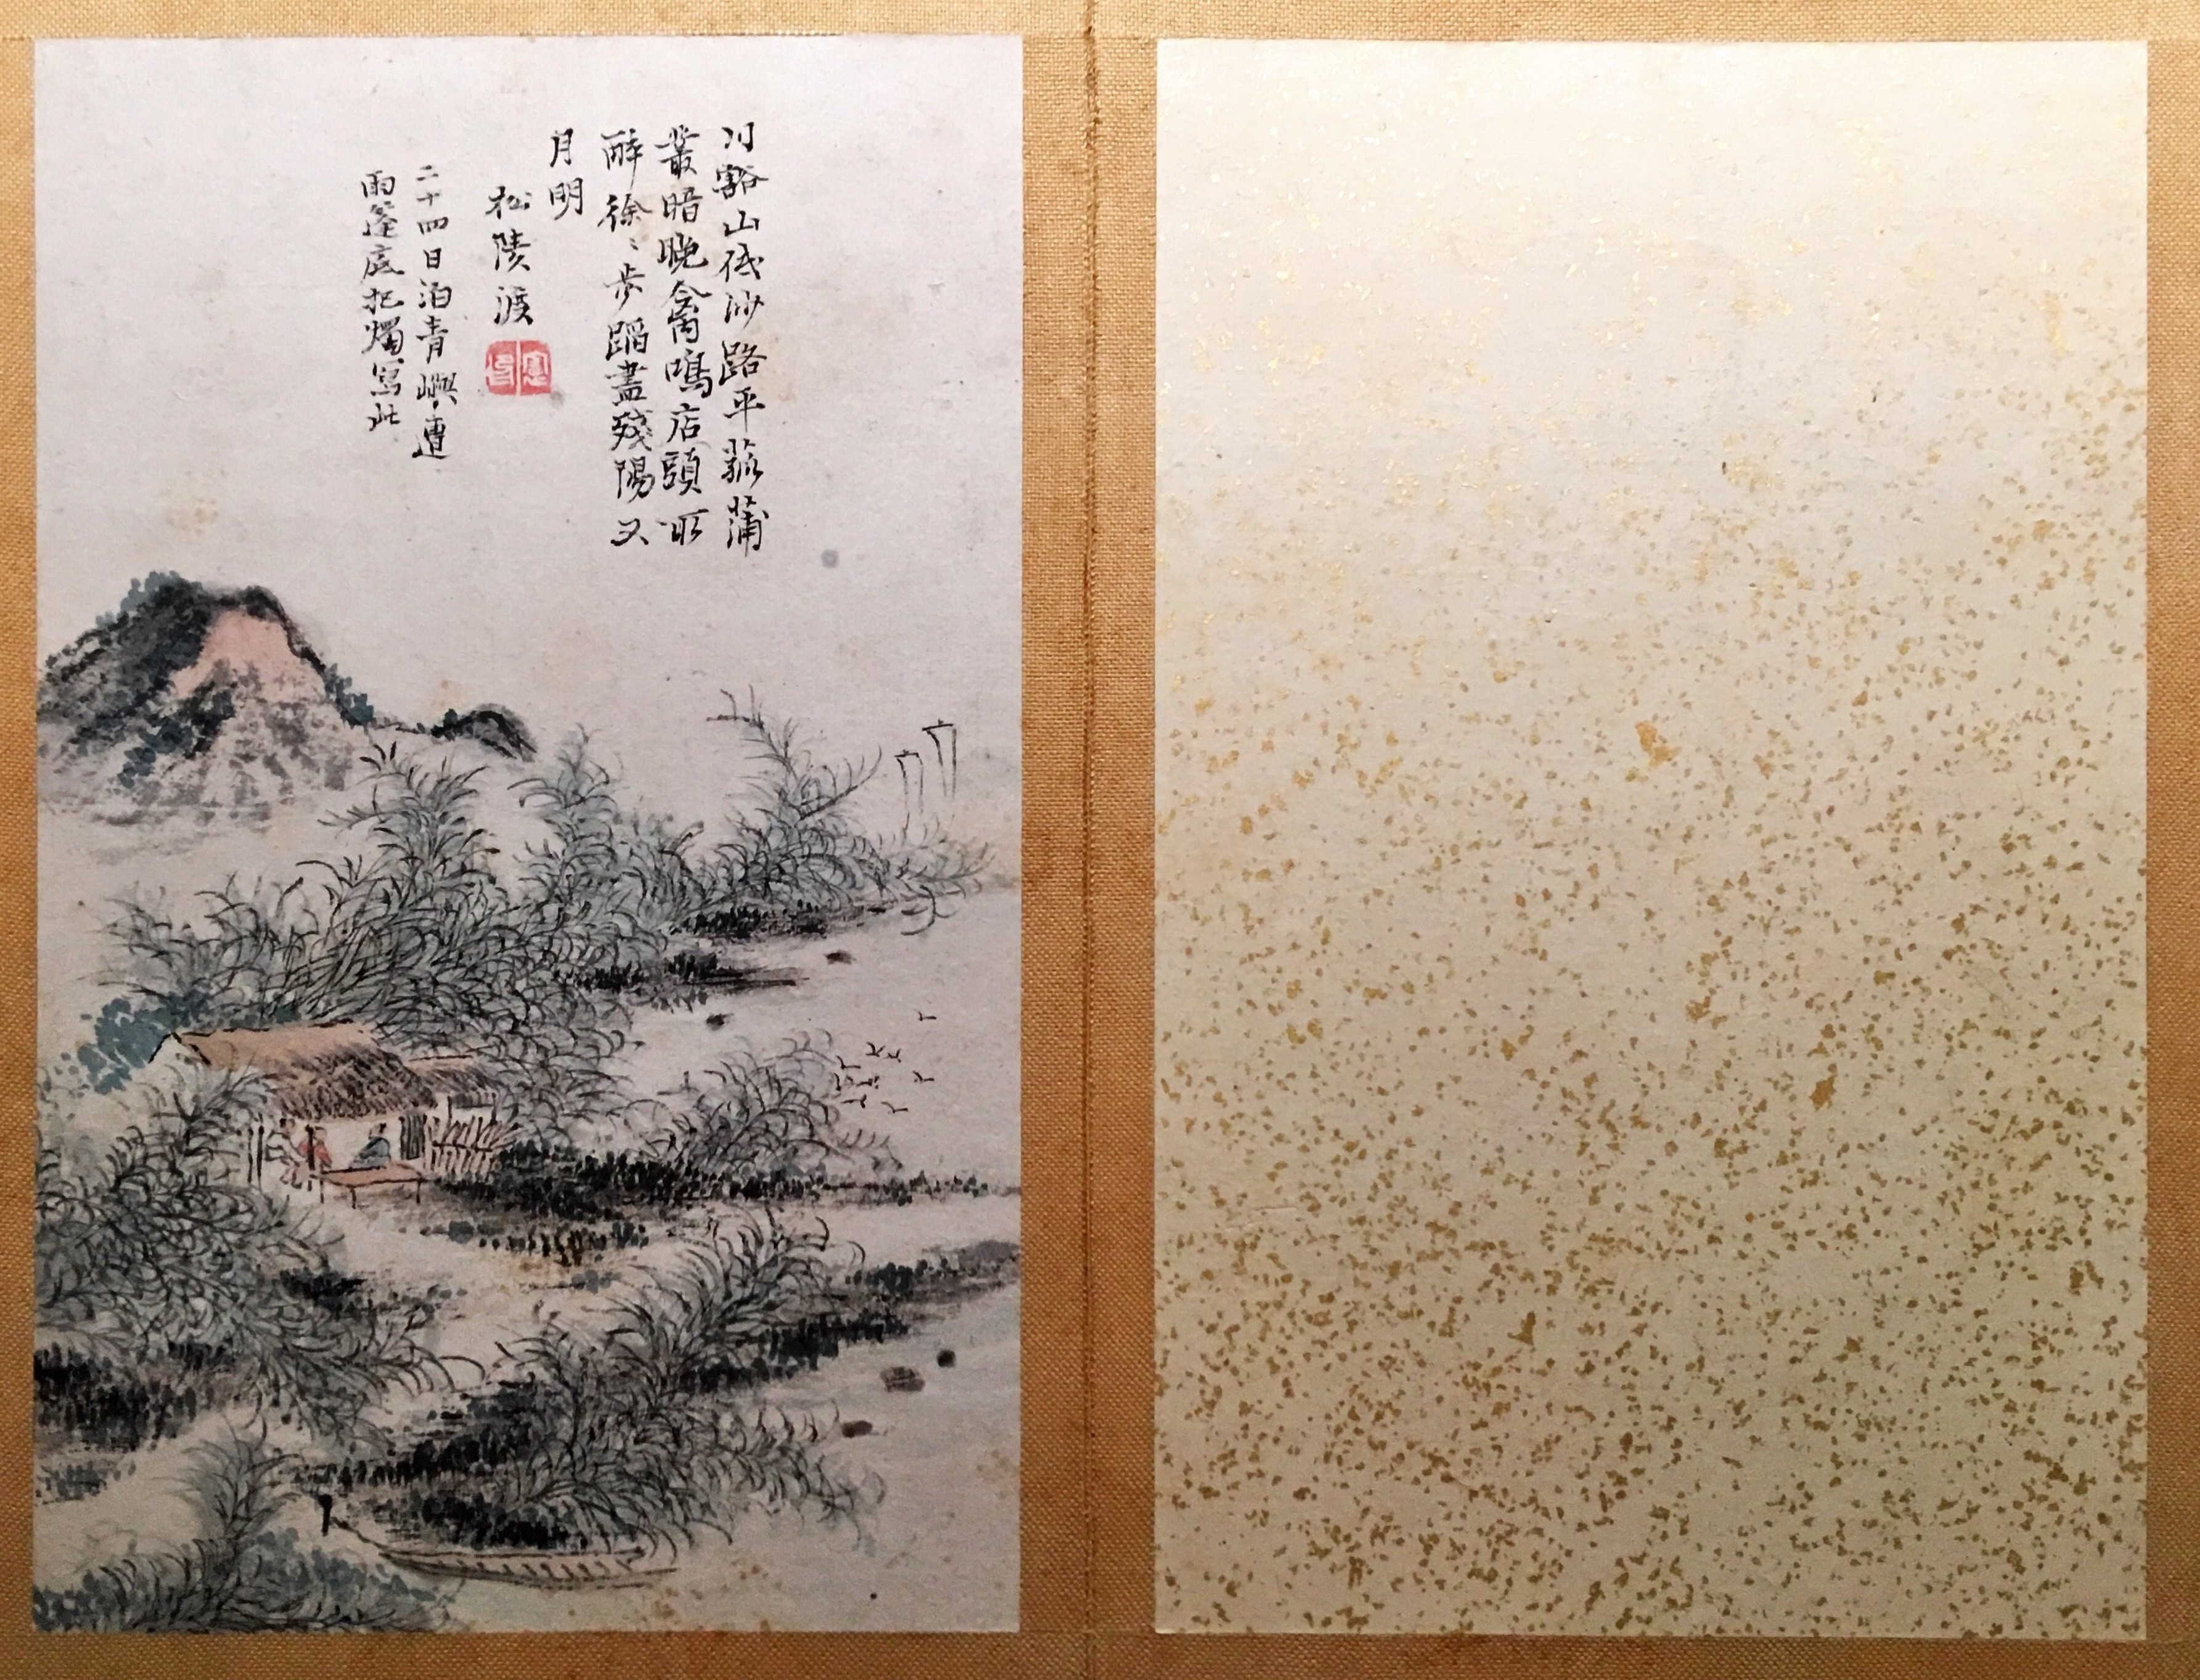 川豁山低沙路平菰蒲
叢暗晚禽鳴店頭取
醉徐〻步蹈盡殘陽又
月明
松陵渡
二十四日泊青嶼遭
雨篷底把燭寫此